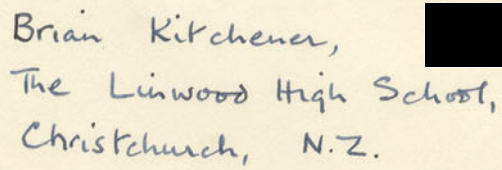 Brian Kitchener,
The Linwood High School,
Christchurch, N.Z.